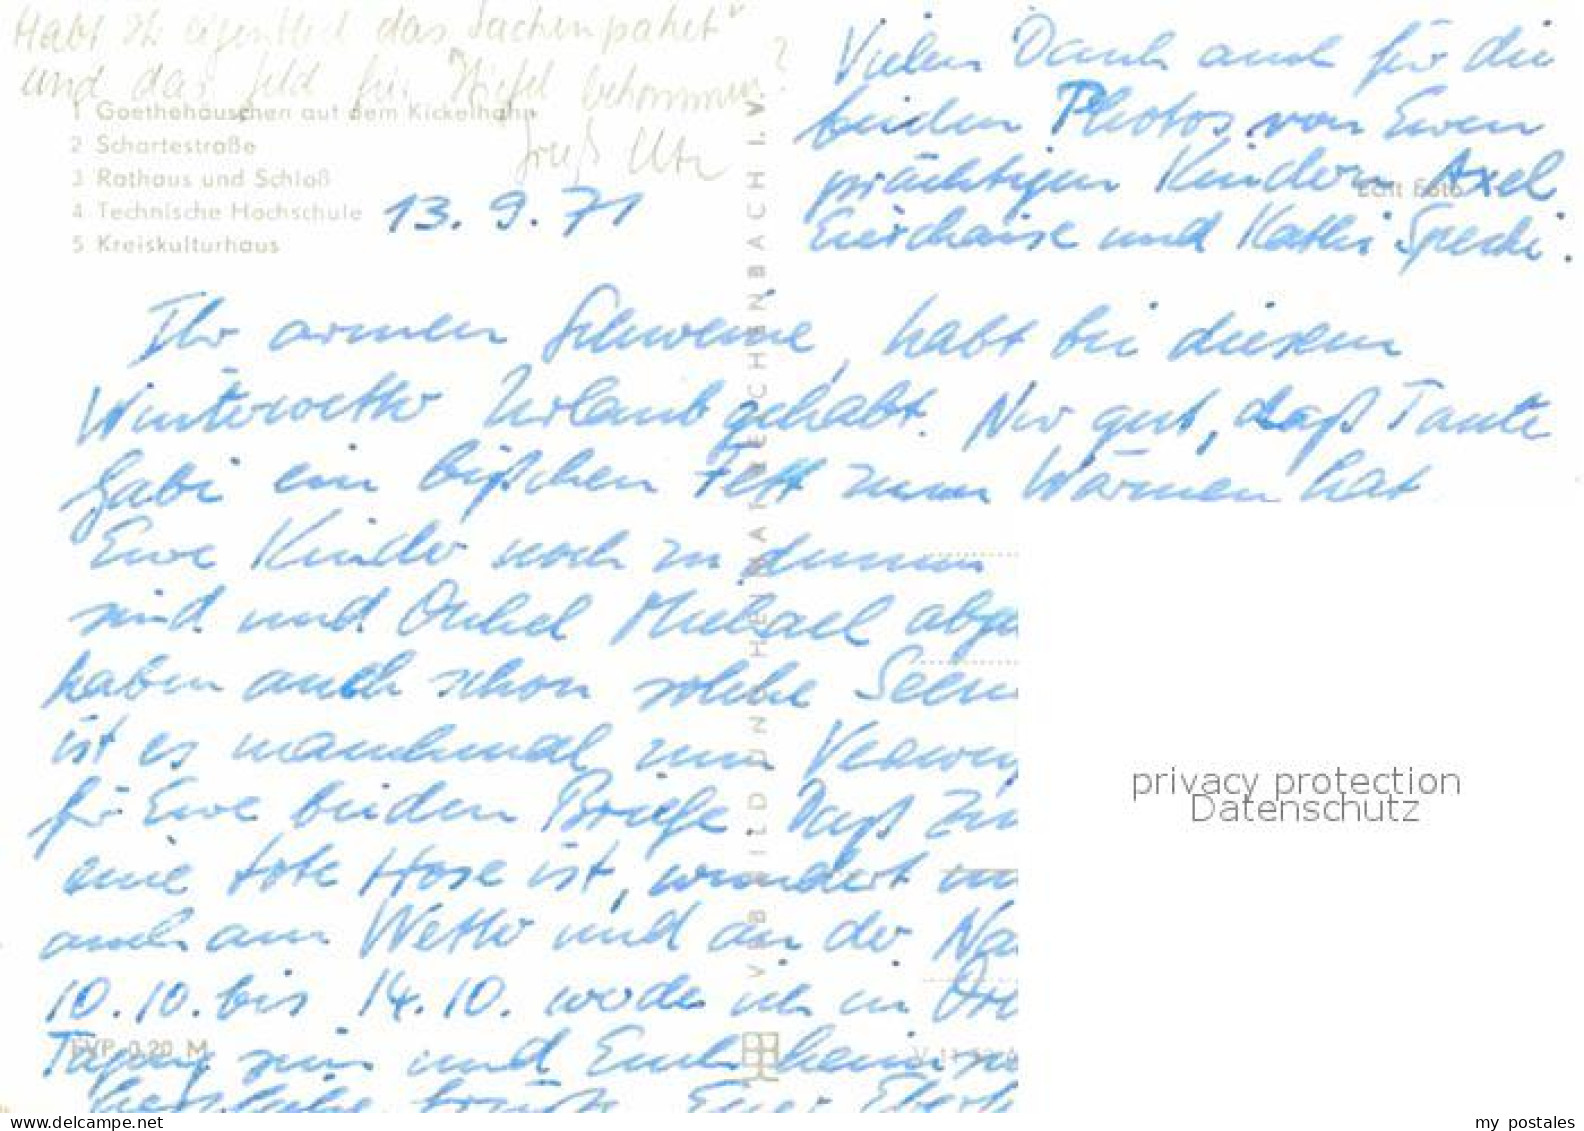 Habt Ihr eigentlich das Sachenpaket
und das Geld für Stiefel bekommen?
Gruß Ute
1 Goethehäuschen auf dem Kickelhahn
2 Schortestraße
3 Rathaus und Schloß
4 Technische Hochschule
5 Kreiskulturhaus
13. 9. 71
Vielen Dank auch für die
beiden Photos von Euren
prächtigen Kindern Axel
und Kathi
Echt Foto
Ihr armen Schweine, habt bei diesem
Winterwetter Urlaub gehabt. Nur gut, daß Tante
Gabi ein bißchen Fett zum Wärmen hat
Eure Kinder noch zu dumm
sind und Onkel Michael abge
haben auch schon solche
ist es manchmal zum
für Eure beiden Briefe. Daß
eine tote Hose ist, wundert
auch am Wetter und an der Na
10.10. bis 14.10. werde ich in
sein und Euch heim
herzliche Grüße Euer Eberh
VEB BILD UND HEIMAT REICHENBACH I. V.
EVP 0,20 M
privacy protection
Datenschutz
delcampe.net
my postales